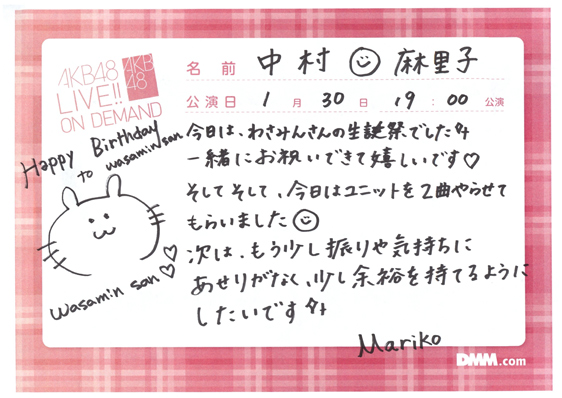 AKB48
LIVE!!
ON DEMAND
AKB
48
名前 中村 麻里子
公演日 1月30日 19:00公演
Happy Birthday
to wasamin san
wasamin san
今日は、わさみんさんの生誕祭でした
一緒にお祝いできて嬉しいです♡
そしてそして、今日はユニットを2曲やらせて
もらいました
次は、もう少し振りや気持ちに
あせりがなく、少し余裕を持てるように
したいです
Mariko
DMM.com